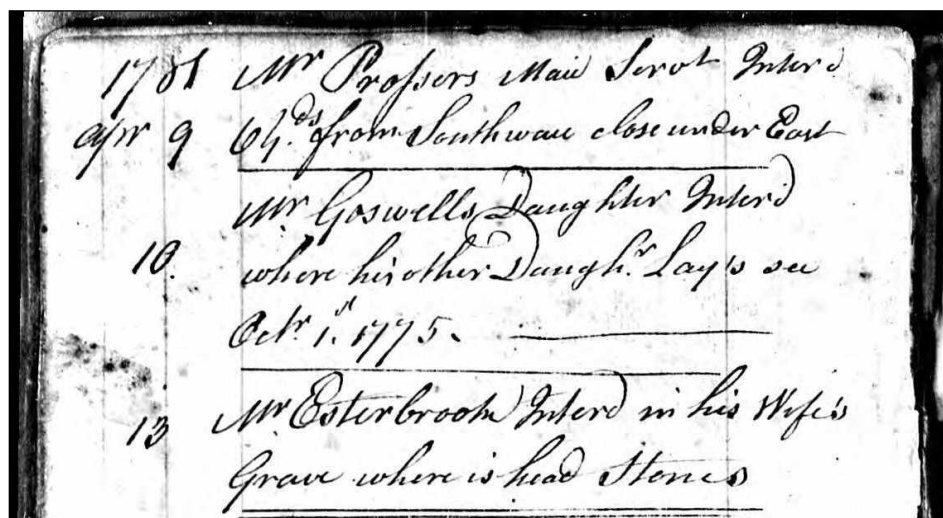 1781 Mr Prossers Maid Servt Inter'd
Apr 9 6 Y.ds from South wall close under East
Mr Goswells Daughter Inter'd
10. where his other Daugh.r Lay's see
Octr. 1.st 1775.
13 Mr Esterbrook Interd in his Wife's
Grave where is head Stones